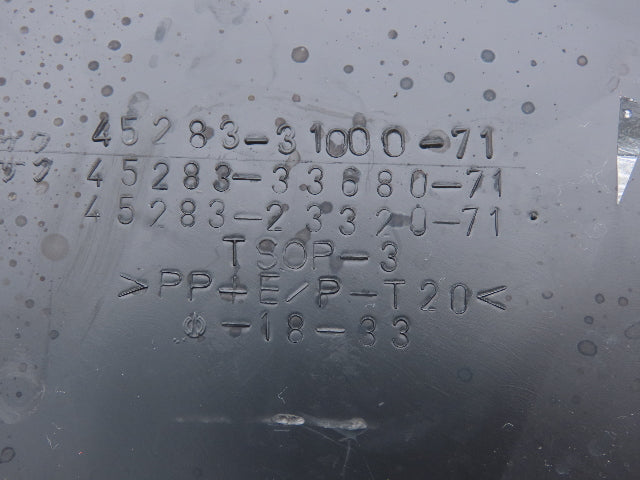 45283-31000-71
45283-33680-71
45283-23320-71
TSOP-3
>PP+E/P-T20<
Φ-18-33